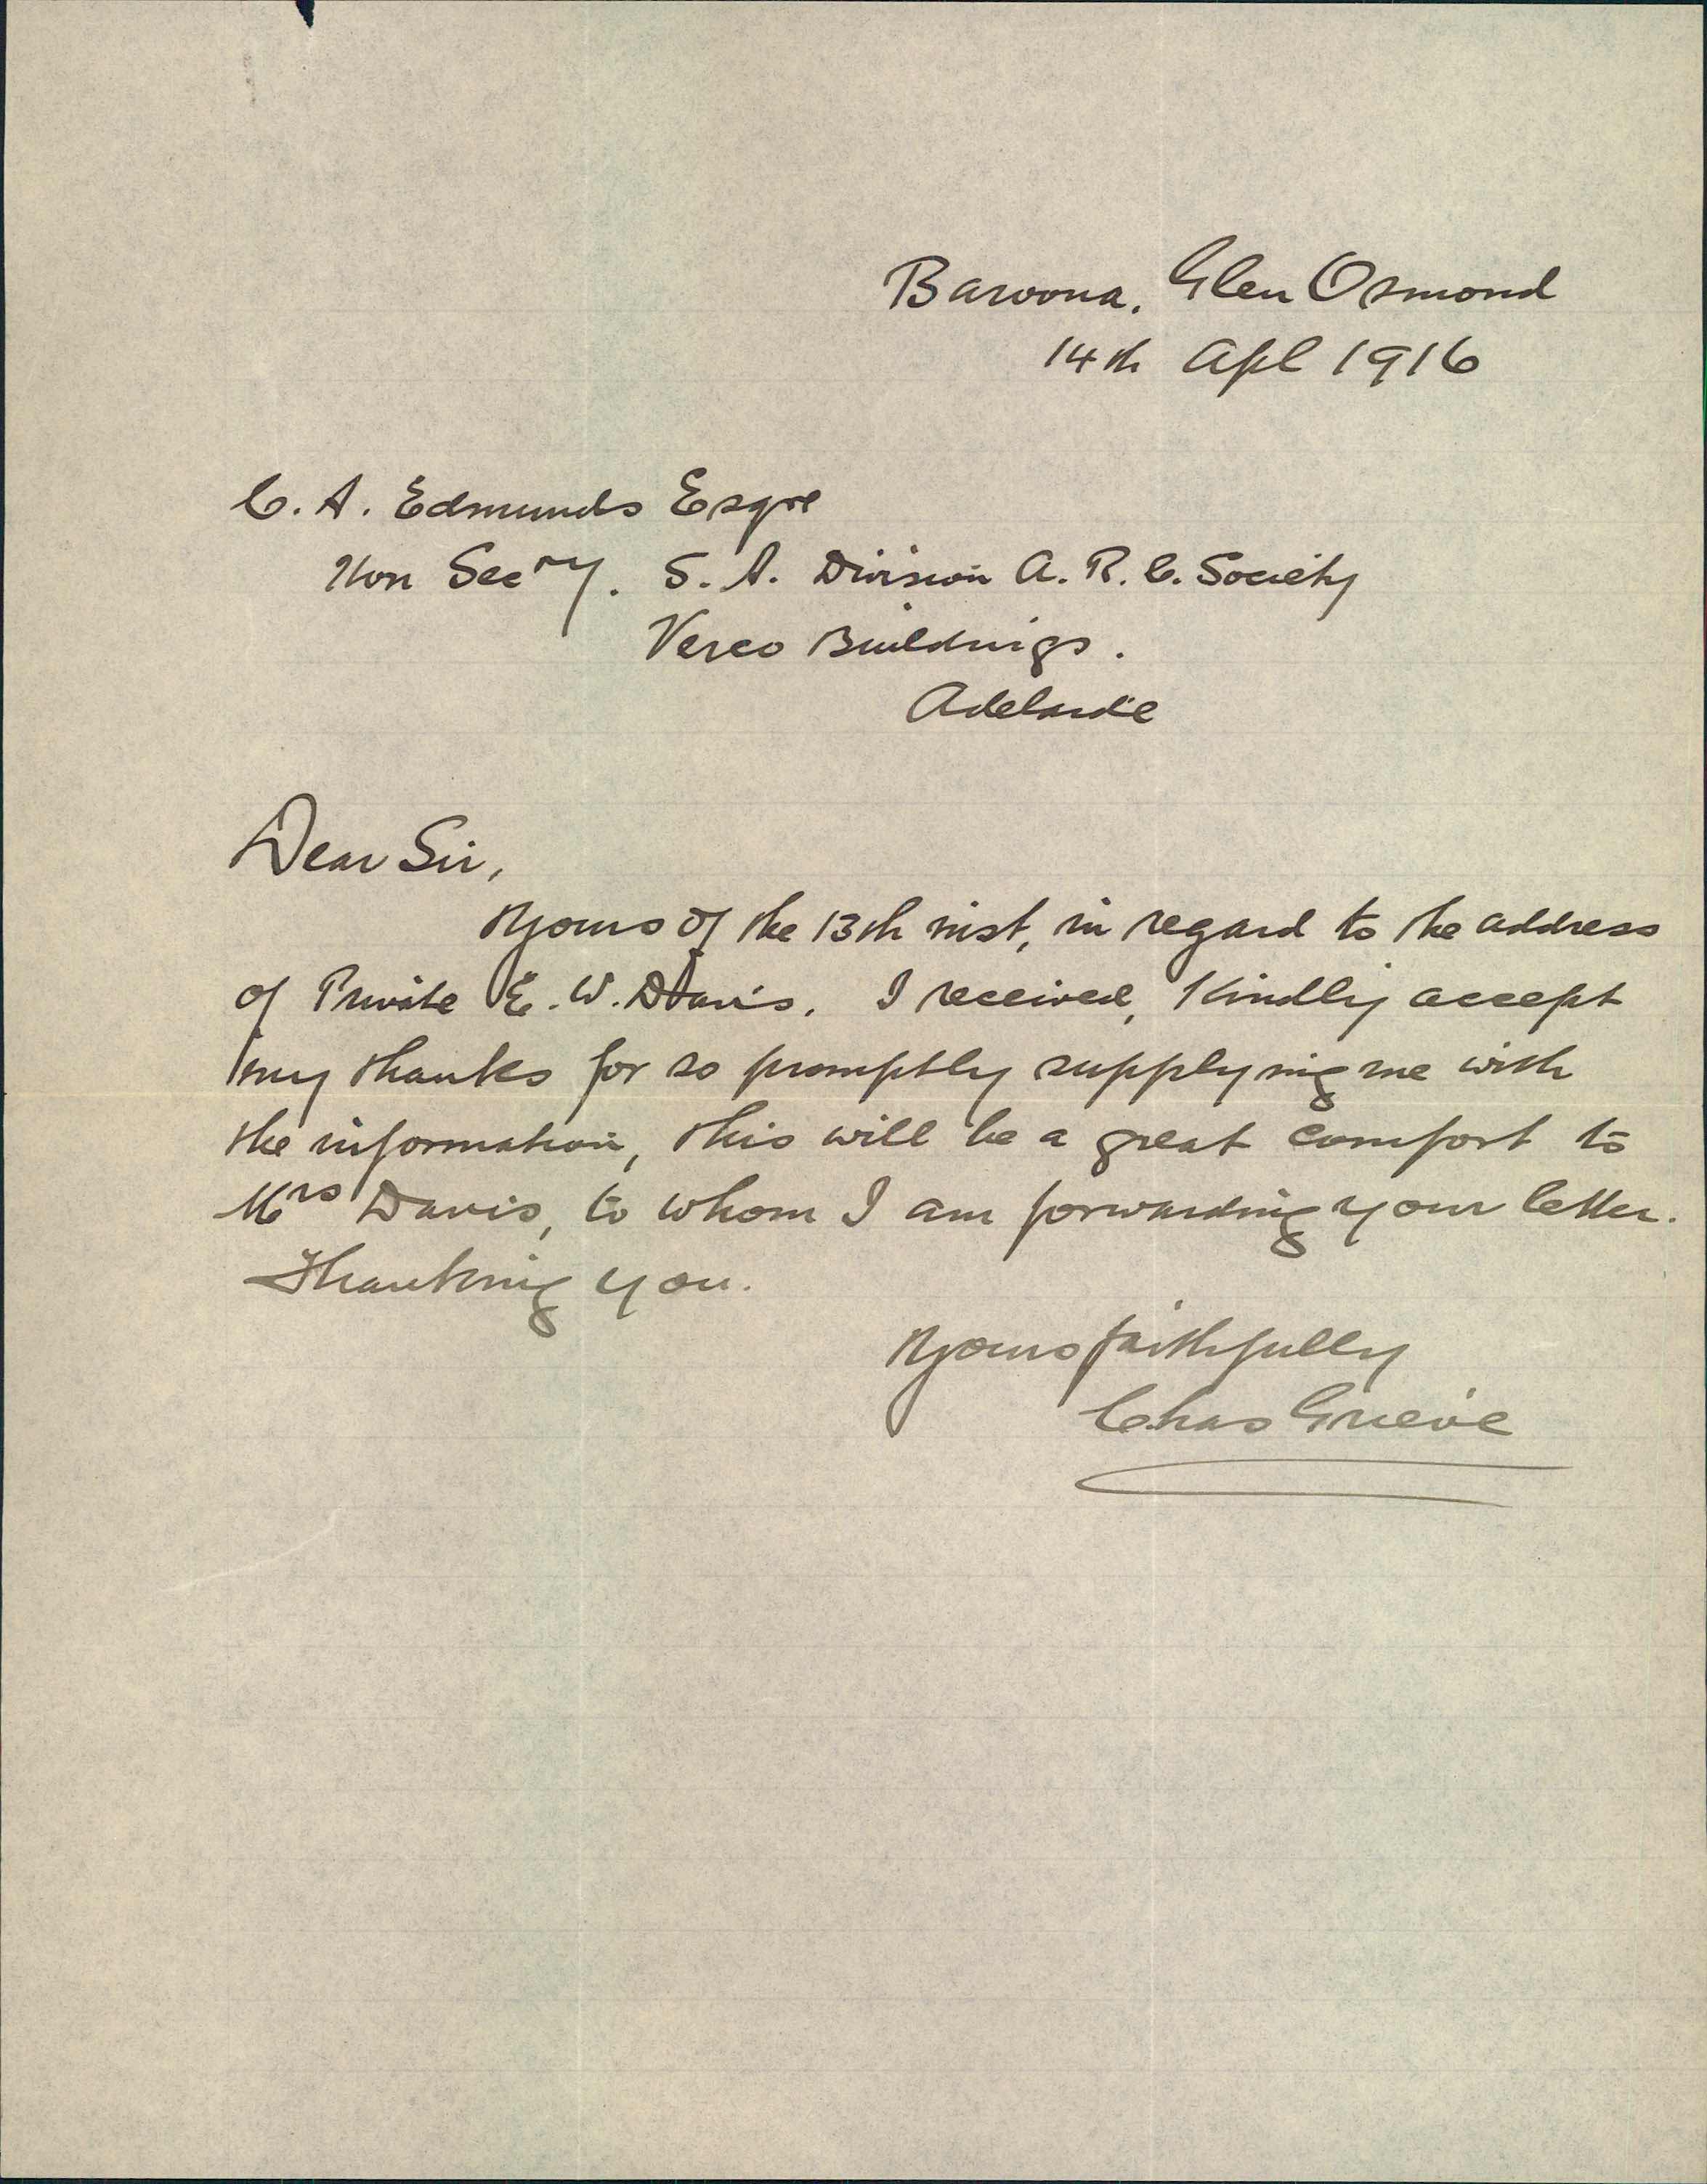 Baroona, Glen Osmond
14th Apl 1916
C. A. Edmunds Esqre
Hon Secry. S. A. Division A. R. C. Society
Verco Buildings.
Adelaide
Dear Sir,
Yours of the 13th inst, in regard to the address
of Private E. W. Davis. I received, Kindly accept
my thanks for so promptly supplying me with
the information, this will be a great comfort to
Mrs Davis, to whom I am forwarding your letter.
Thanking you.
Yours faithfully
Chas Grieve